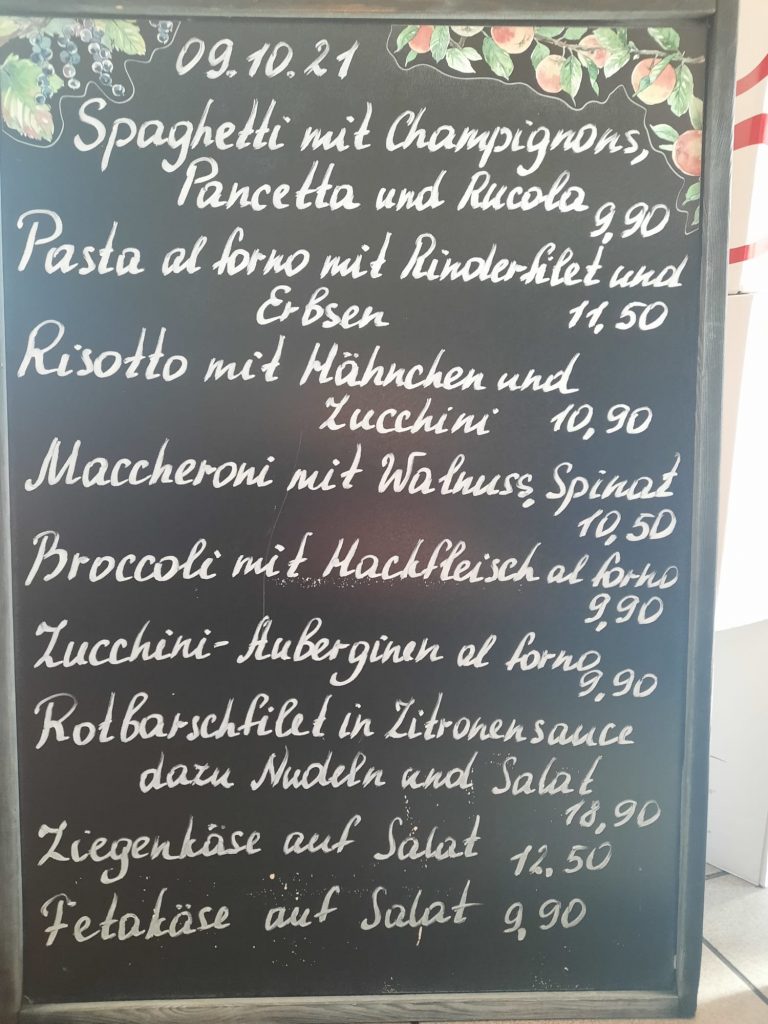 09.10.21
Spaghetti mit Champignons,
Pancetta und Rucola
9,90
Pasta al forno mit Rinderfilet und
Erbsen 11,50
Risotto mit Hähnchen und
Zucchini 10,90
Maccheroni mit Walnuss, Spinat
10,50
Broccoli mit Hackfleisch al forno
9,90
Zucchini-Auberginen al forno
9,90
Rotbarschfilet in Zitronensauce
dazu Nudeln und Salat
18,90
Ziegenkäse auf Salat 12.50
Fetakäse auf Salat 9,90